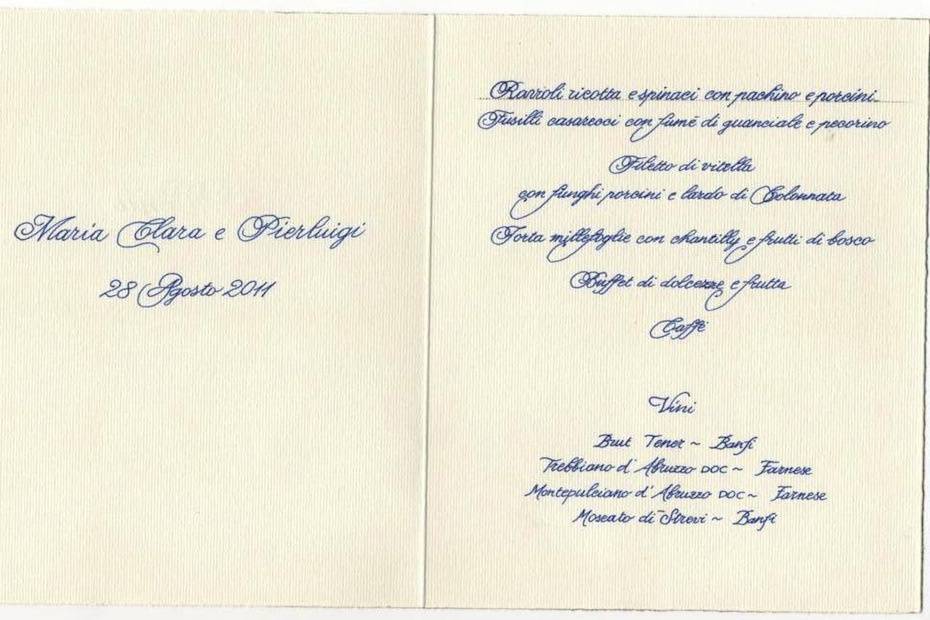 Maria Clara e Pierluigi
28 Agosto 2011
Ravioli ricotta e spinaci con pachino e porcini
Fusilli casarecci con fumè di guanciale e pecorino
Filetto di vitella
con funghi porcini e lardo di Colonnata
Torta millefoglie con chantilly e frutti di bosco
Buffet di dolcezze e frutta
Caffè
Vini
Brut Tener ~ Banfi
Trebbiano d'Abruzzo DOC ~ Farnese
Montepulciano d'Abruzzo DOC ~ Farnese
Moscato di Strevi ~ Banfi